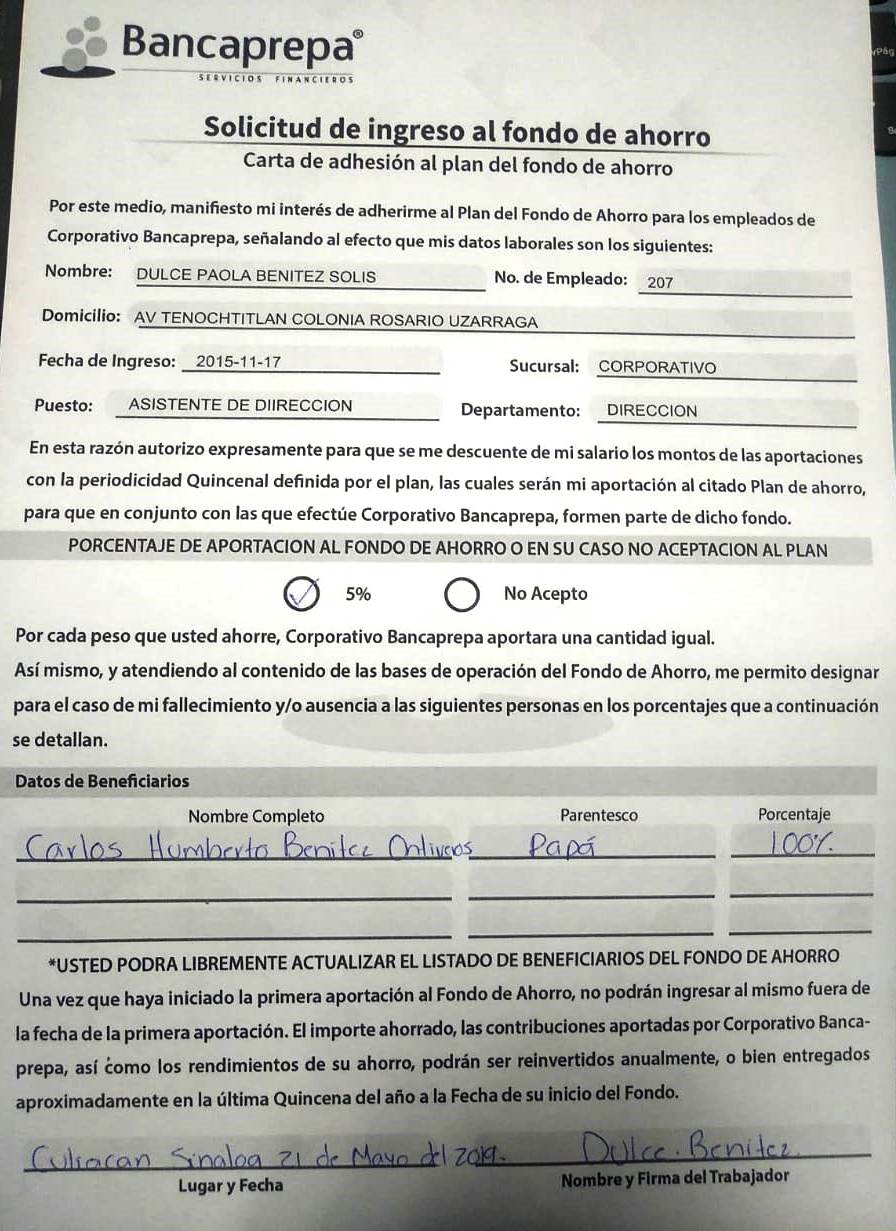 Bancaprepa®
SERVICIOS FINANCIEROS
Solicitud de ingreso al fondo de ahorro
Carta de adhesión al plan del fondo de ahorro
Por este medio, manifiesto mi interés de adherirme al Plan del Fondo de Ahorro para los empleados de
Corporativo Bancaprepa, señalando al efecto que mis datos laborales son los siguientes:
Nombre: DULCE PAOLA BENITEZ SOLIS No. de Empleado: 207
Domicilio: AV TENOCHTITLAN COLONIA ROSARIO UZARRAGA
Fecha de Ingreso: 2015-11-17 Sucursal: CORPORATIVO
Puesto: ASISTENTE DE DIIRECCION Departamento: DIRECCION
En esta razón autorizo expresamente para que se me descuente de mi salario los montos de las aportaciones
con la periodicidad Quincenal definida por el plan, las cuales serán mi aportación al citado Plan de ahorro,
para que en conjunto con las que efectúe Corporativo Bancaprepa, formen parte de dicho fondo.
PORCENTAJE DE APORTACION AL FONDO DE AHORRO O EN SU CASO NO ACEPTACION AL PLAN
5% No Acepto
Por cada peso que usted ahorre, Corporativo Bancaprepa aportara una cantidad igual.
Así mismo, y atendiendo al contenido de las bases de operación del Fondo de Ahorro, me permito designar
para el caso de mi fallecimiento y/o ausencia a las siguientes personas en los porcentajes que a continuación
se detallan.
Datos de Beneficiarios
Nombre Completo Parentesco Porcentaje
Carlos Humberto Benitez Ontiveros Papá 100%.
*USTED PODRA LIBREMENTE ACTUALIZAR EL LISTADO DE BENEFICIARIOS DEL FONDO DE AHORRO
Una vez que haya iniciado la primera aportación al Fondo de Ahorro, no podrán ingresar al mismo fuera de
la fecha de la primera aportación. El importe ahorrado, las contribuciones aportadas por Corporativo Banca-
prepa, así como los rendimientos de su ahorro, podrán ser reinvertidos anualmente, o bien entregados
aproximadamente en la última Quincena del año a la Fecha de su inicio del Fondo.
Culiacan Sinaloa 21 de Mayo del 2019. Dulce. Benitez.
Lugar y Fecha Nombre y Firma del Trabajador